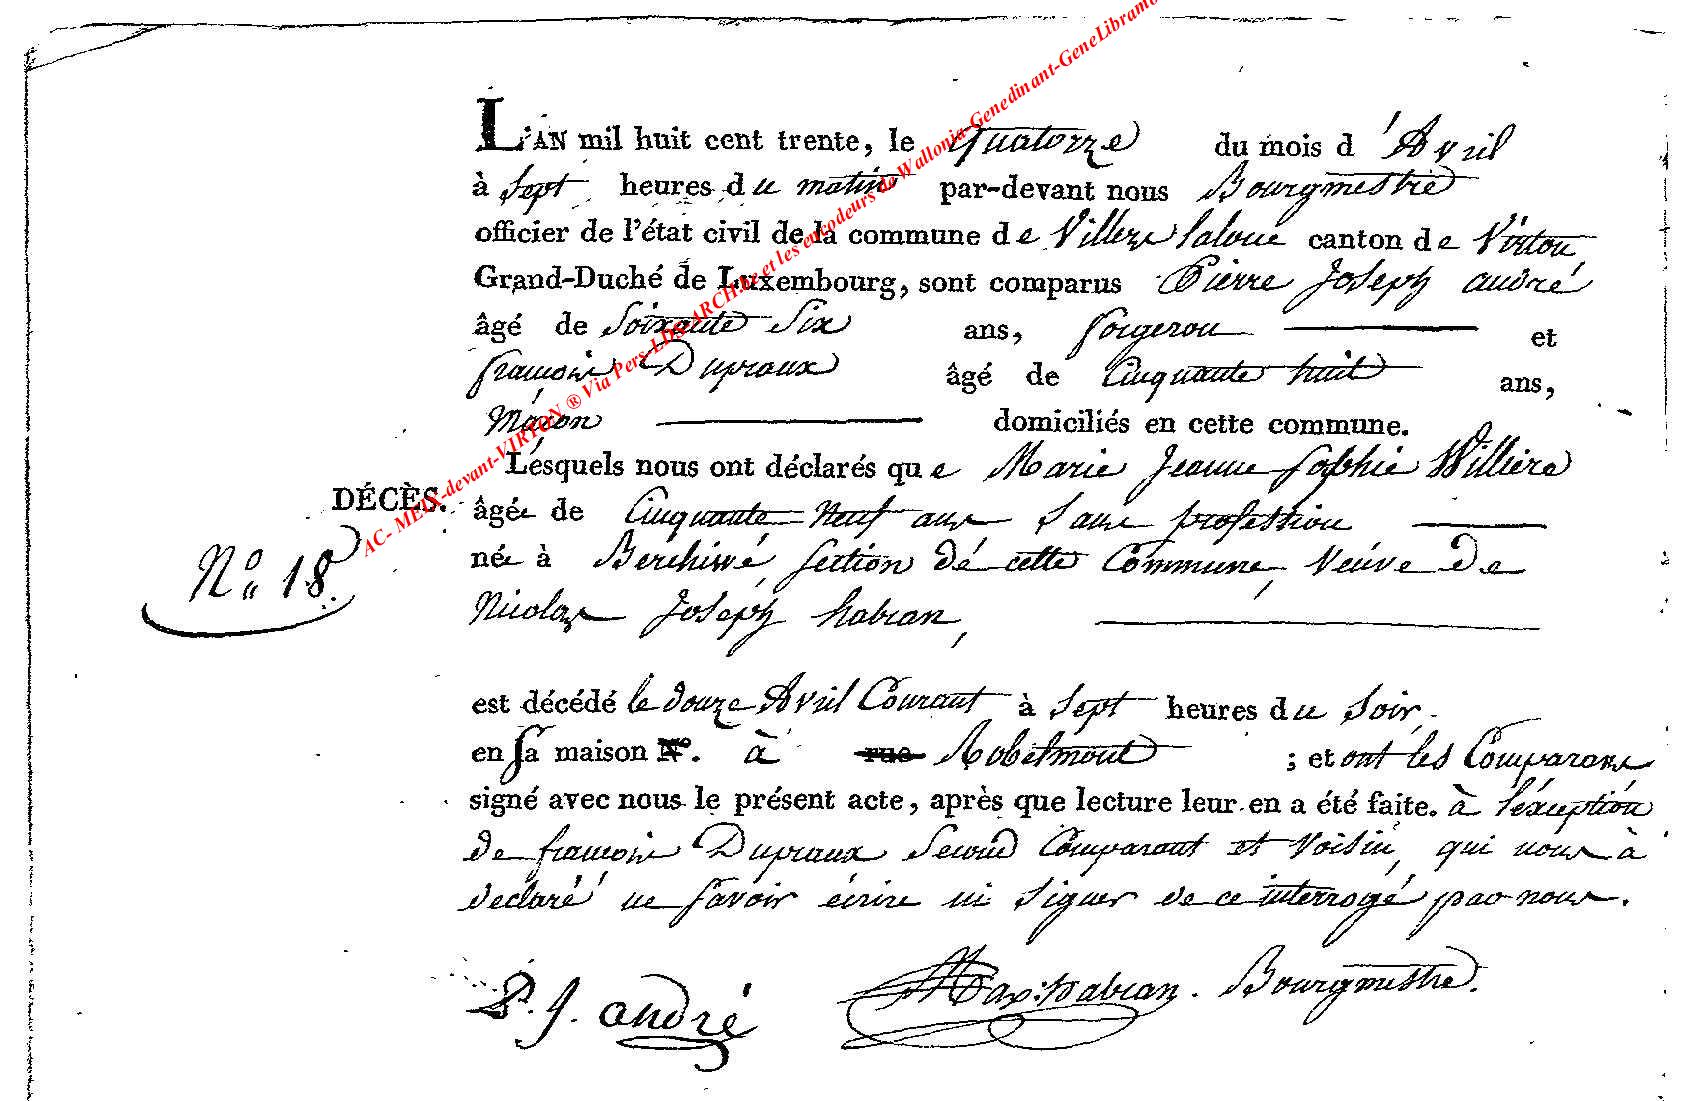 L'AN mil huit cent trente, le Quatorze du mois d'Avril
à Sept heures du matin par-devant nous Bourgmestre
officier de l'état civil de la commune de Villers laloue canton de Virton
Grand-Duché de Luxembourg, sont comparus Pierre Joseph andré
âgé de Soixante Six ans, forgeron et
françois Dupraux âgé de Cinquante huit ans,
Maçon domiciliés en cette commune.
Lesquels nous ont déclarés que Marie Jeanne Sophie Williere
DÉCÈS.
âgée de Cinquante Neuf ans Sans profession
N° 18.
née à Berchiwé, Section dé cette Commune, Veuve de
Nicolas Joseph habran,
est décédé le douze Avril Courant à Sept heures du Soir
en sa maison N°. à rue Robelmont ; et ont les Comparans
signé avec nous le présent acte, après que lecture leur en a été faite. à l'éxception
de françois Dupraux Second Comparant et Voisin, qui nous à
declaré ne Savoir écrire ni Signer de ce interrogé par nous.
P. J. andré Max: habran. Bourgmestre.
AC- MEIX-devant-VIRTON ® Via Pers-LDS-ARCH.be et les encodeurs de Wallonia-Genedinant-GeneLibramo